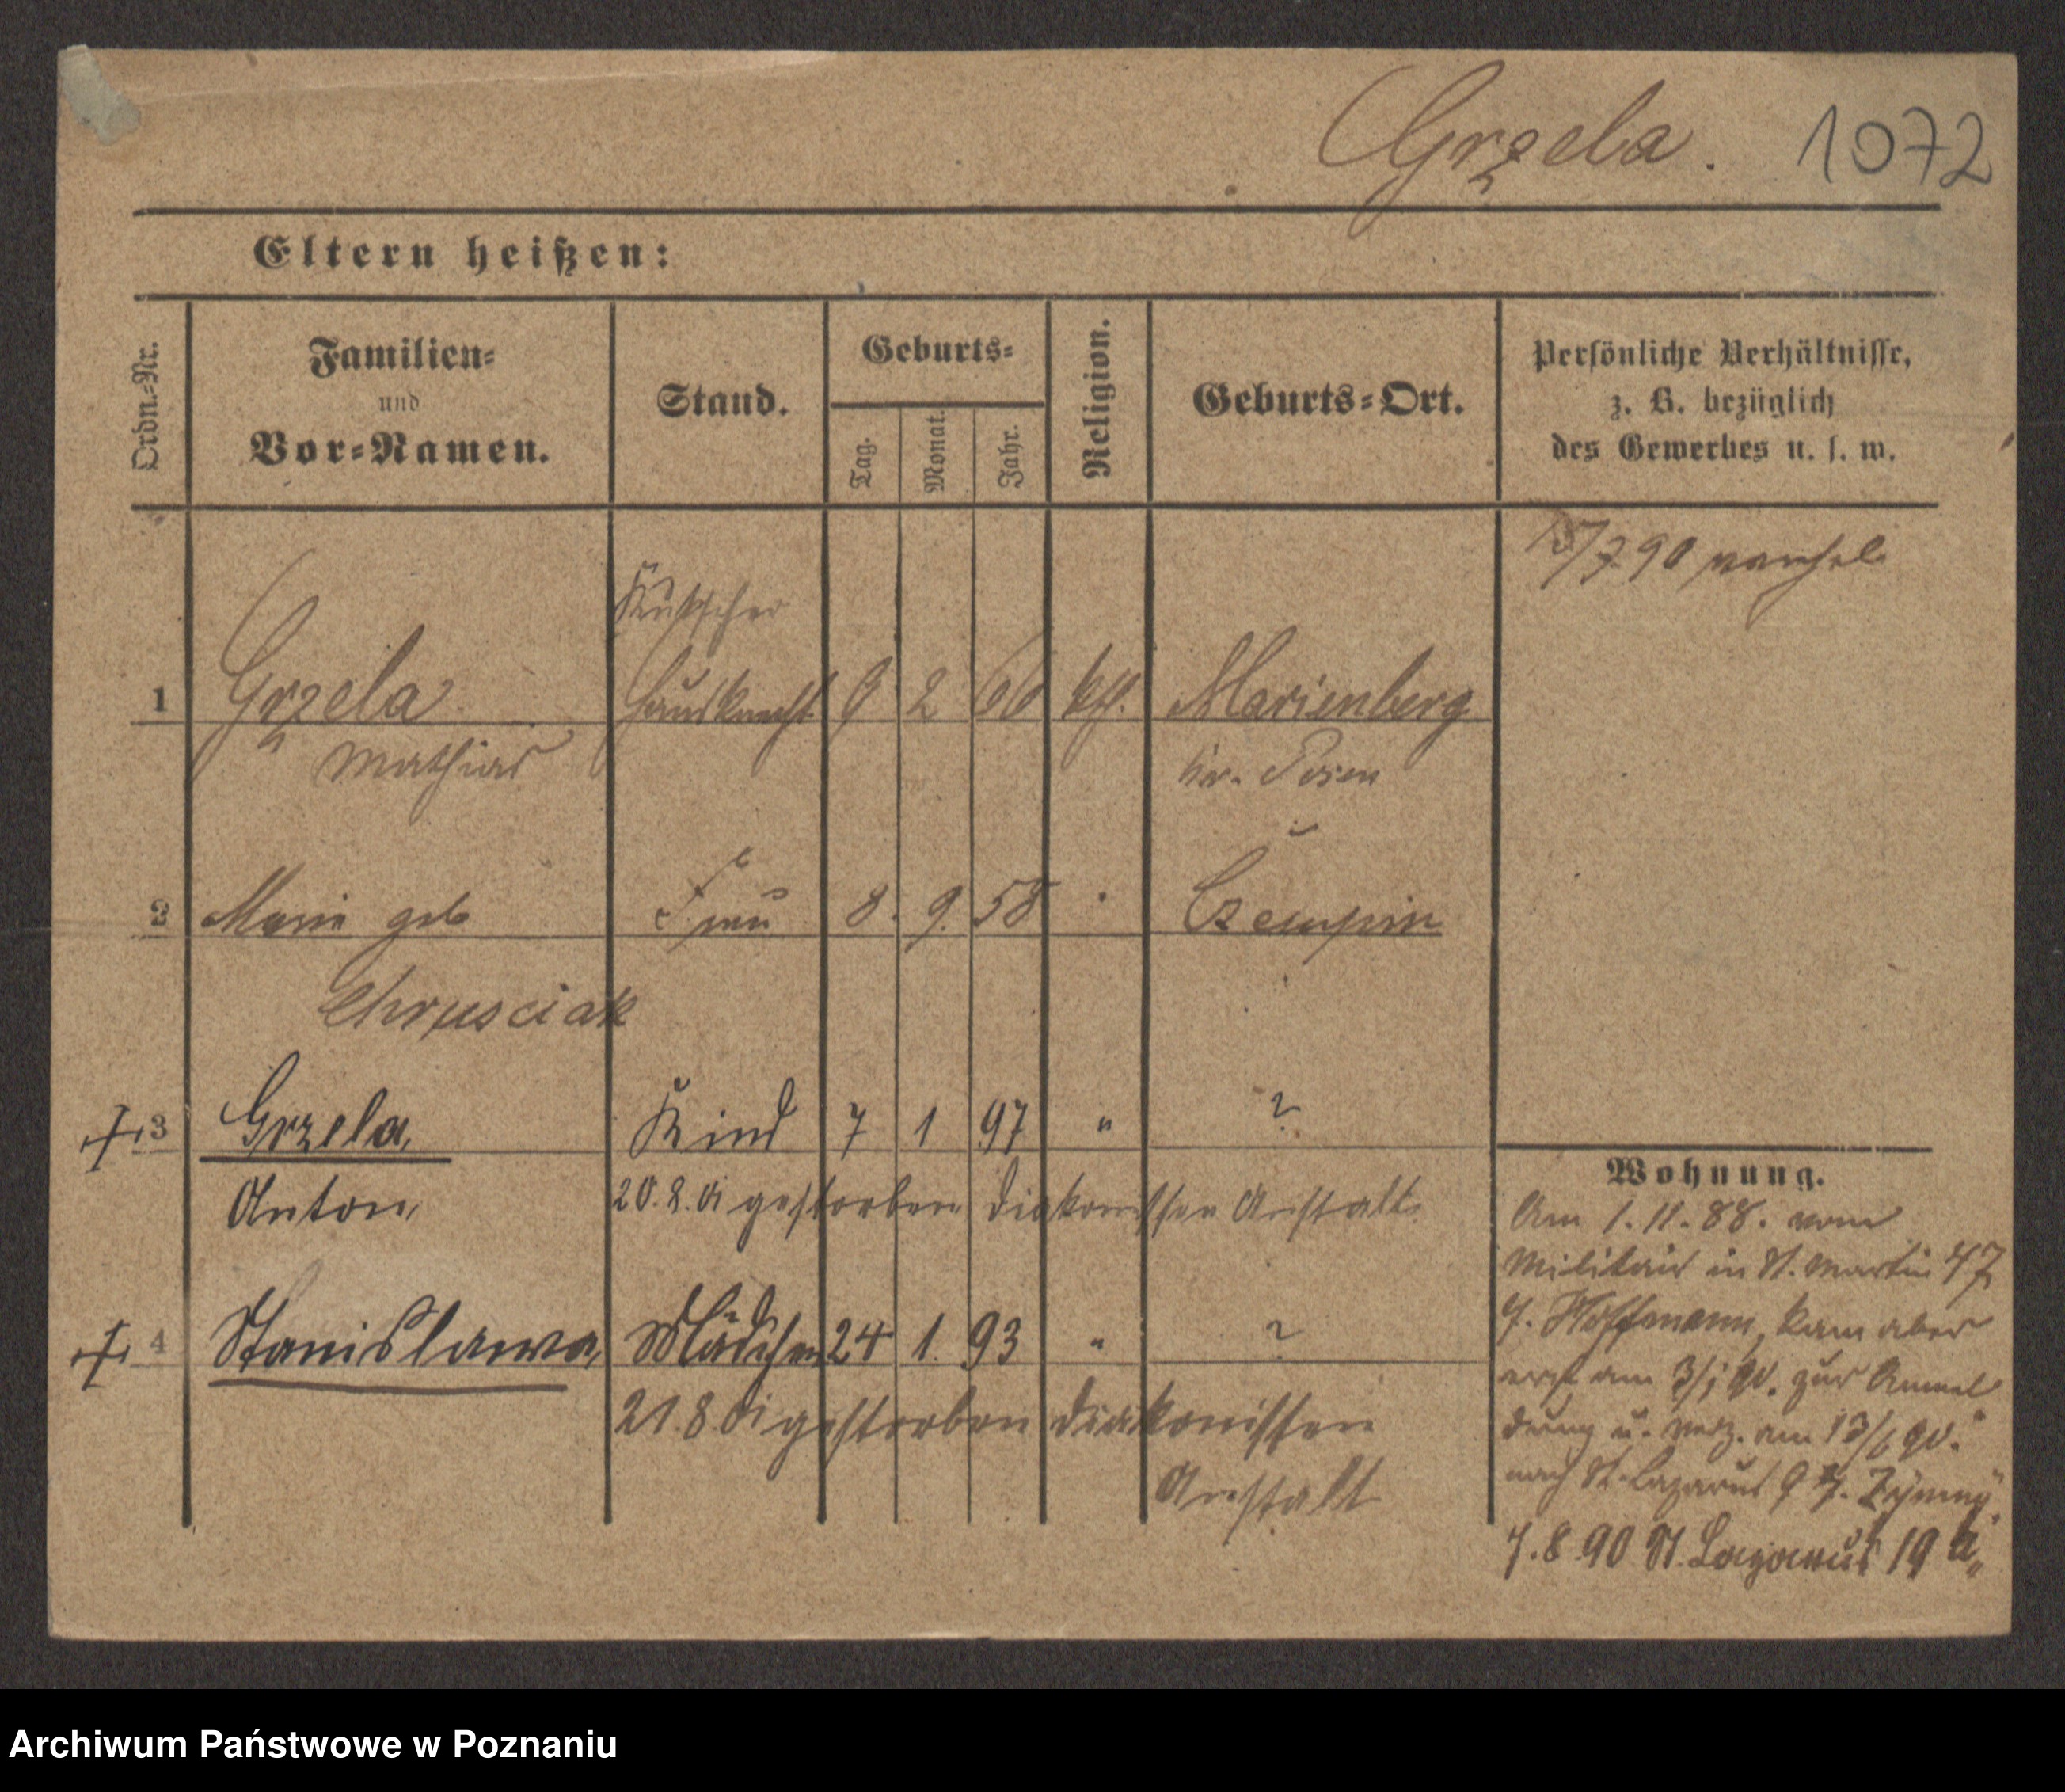 Grzela. 1072
Eltern heißen:
Ordn.-Nr.
Familien-
und
Vor-Namen.
Stand.
Geburts-
Tag.
Monat.
Jahr.
Religion.
Geburts-Ort.
Persönliche Verhältnisse,
z. B. bezüglich
des Gewerbes u. s. w.
90
Kutscher
1 Grzela Hausknecht 2 60 kth. Marienberg
Mathias Kr. Posen
2 Marie geb Frau 8. 9. 58 " Czempin
Chrusciak
3 Grzela, Kind 7 1 97 " ?
Anton, 20. 8. 01 gestorben Diakonissen Anstalt.
4 Stanislawa, Mädchen 24 1. 93 " ?
21. 8. 01 gestorben Diakonissen
Anstalt
Wohnung.
Am 1. 11. 88. vom
Militair in St. Martin 47
Hoffmann, kam aber
erst am 3/1 90. zur Anmel
dung u. verz. am 13/6 90.
nach St. Lazarus 9
7. 8 90 St. Lazarus 19 a,
Archiwum Państwowe w Poznaniu